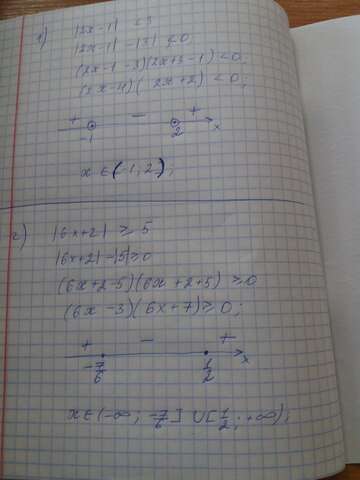 1) |2x-1| < 3
|2x-1| - |3| < 0
(2x-1-3)(2x+3-1) < 0;
(2x-4)(2x+2) < 0;
+ - +
-1 2 x
x ∈ (-1, 2);
2) |6x+2| ≥ 5
|6x+2| - |5| ≥ 0
(6x+2-5)(6x+2+5) ≥ 0
(6x-3)(6x+7) ≥ 0;
+ - +
-7/6 1/2 x
x ∈ (-∞; -7/6] ∪ [1/2; +∞);